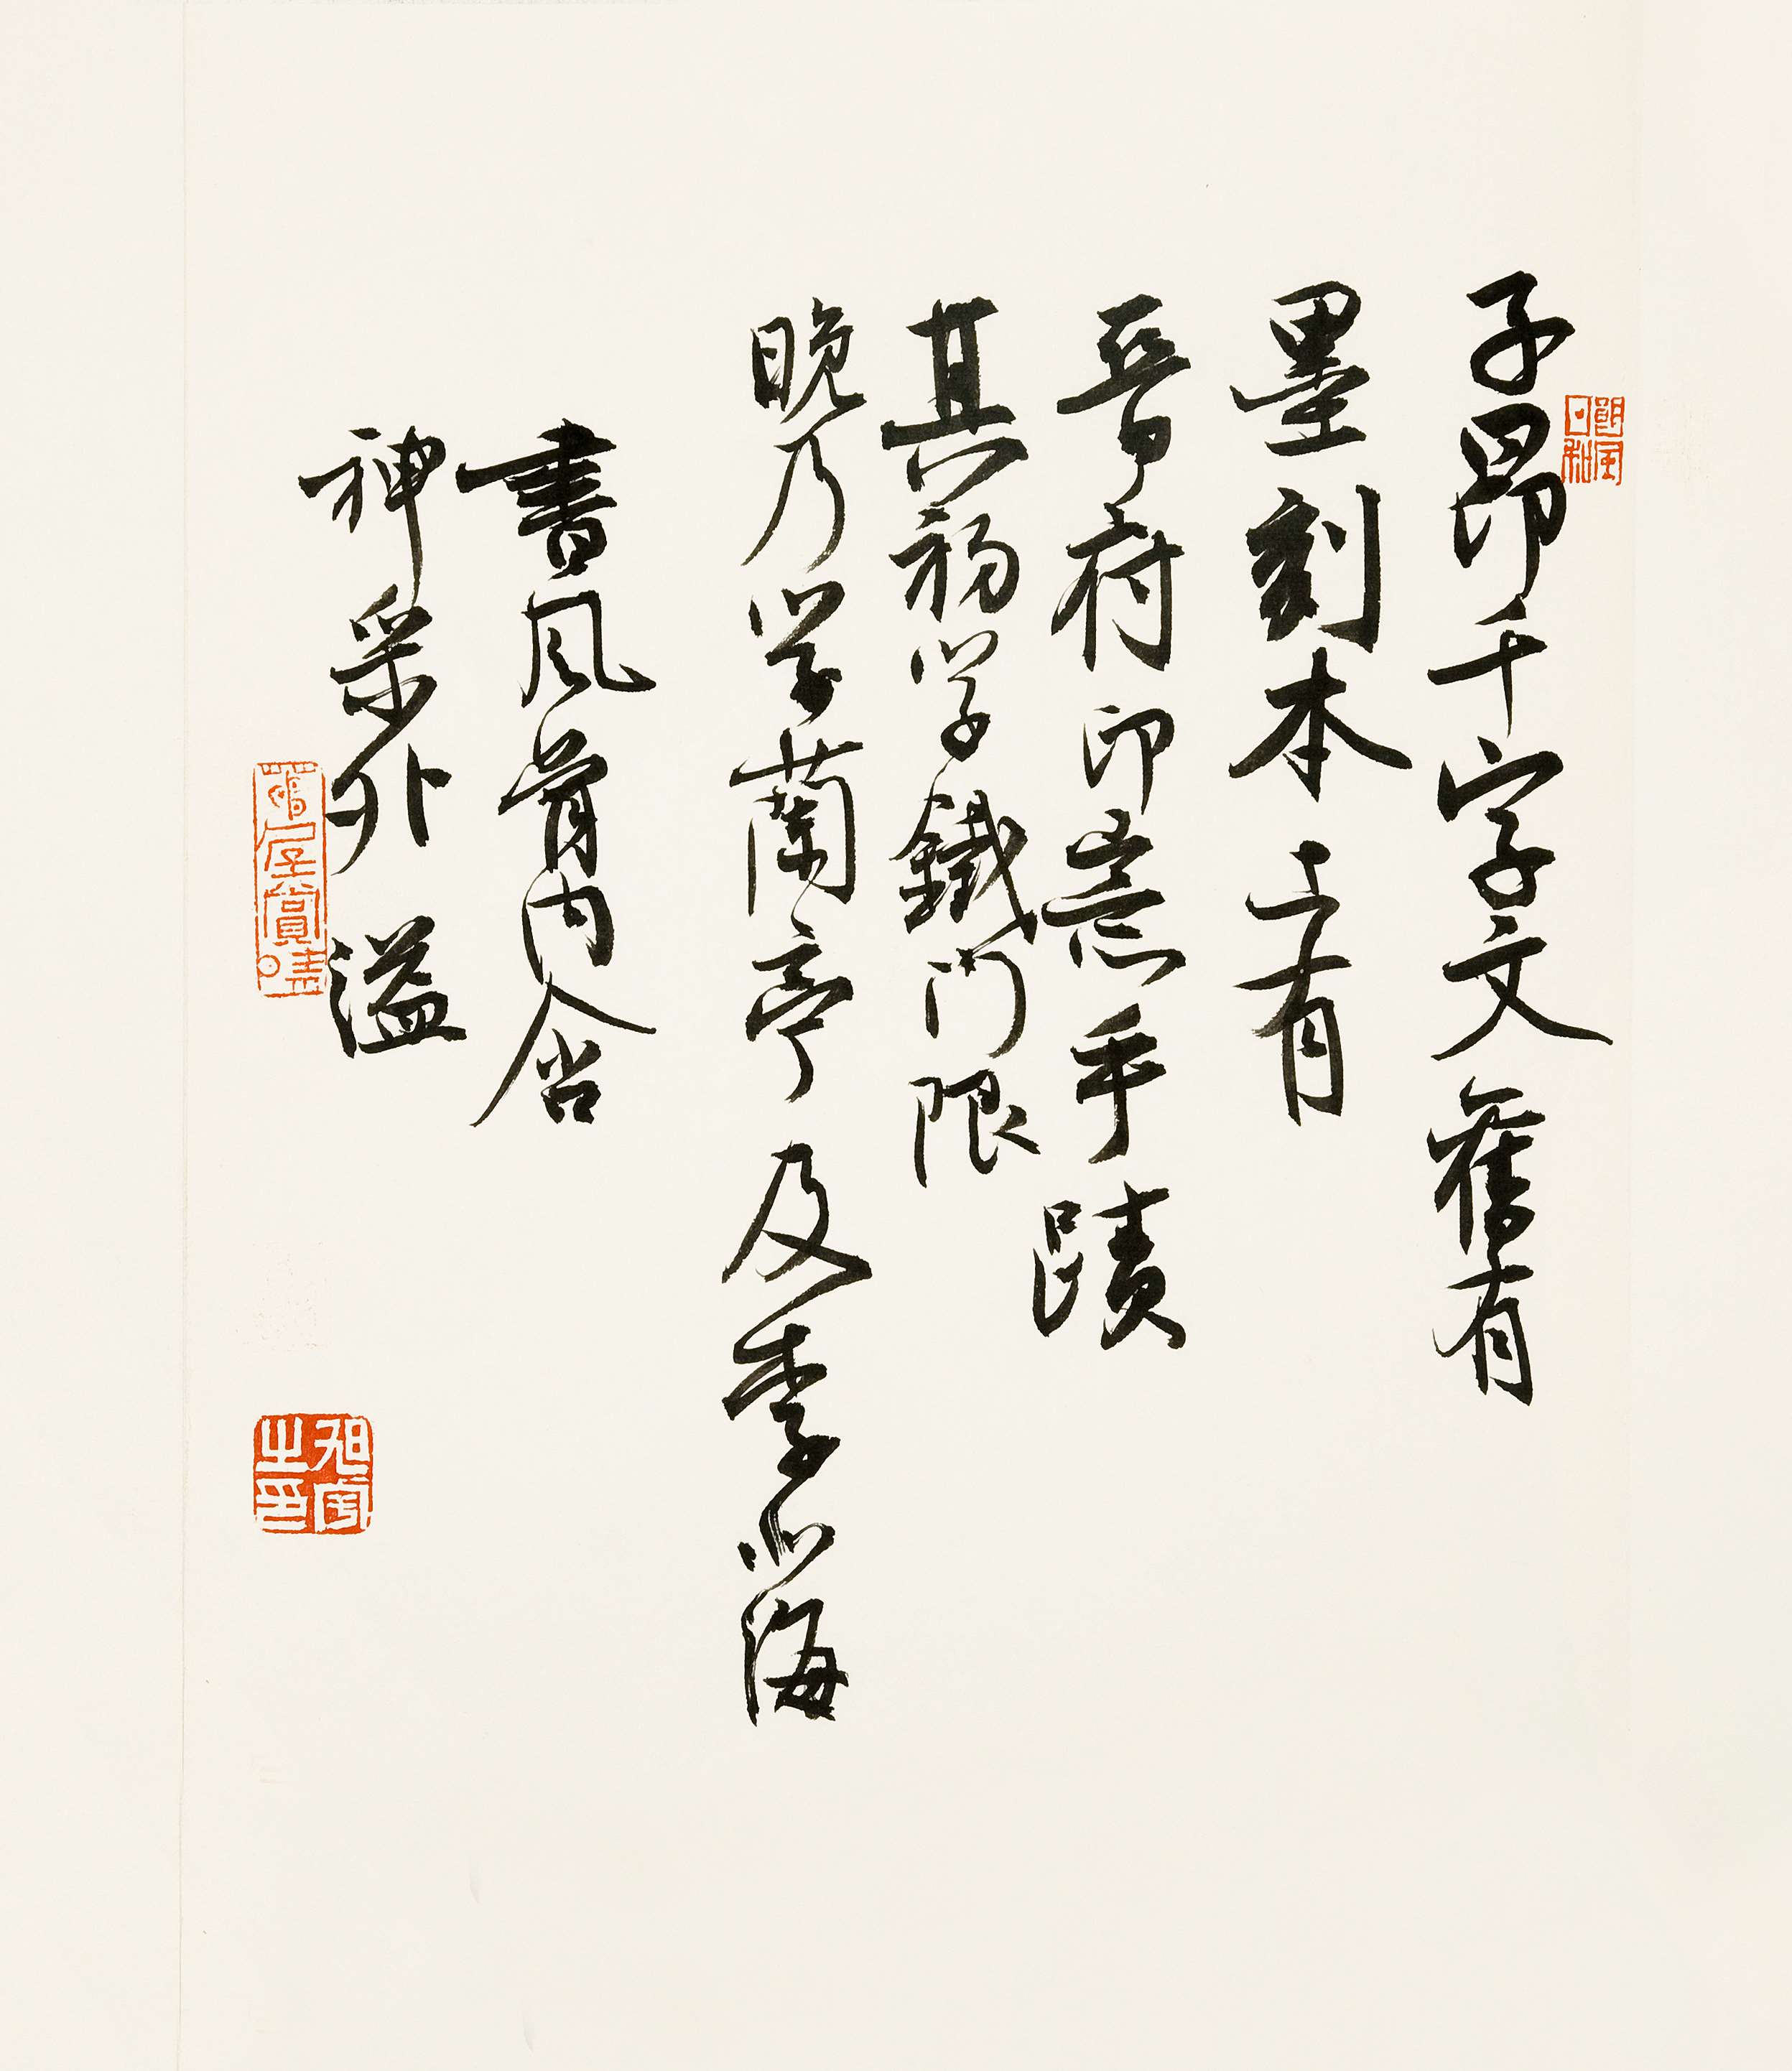 子昂千字文舊有
墨刻本上有
晉府印章手蹟
其初学鐵門限
晚乃学蘭亭及李北海
書風骨内含
神采外溢